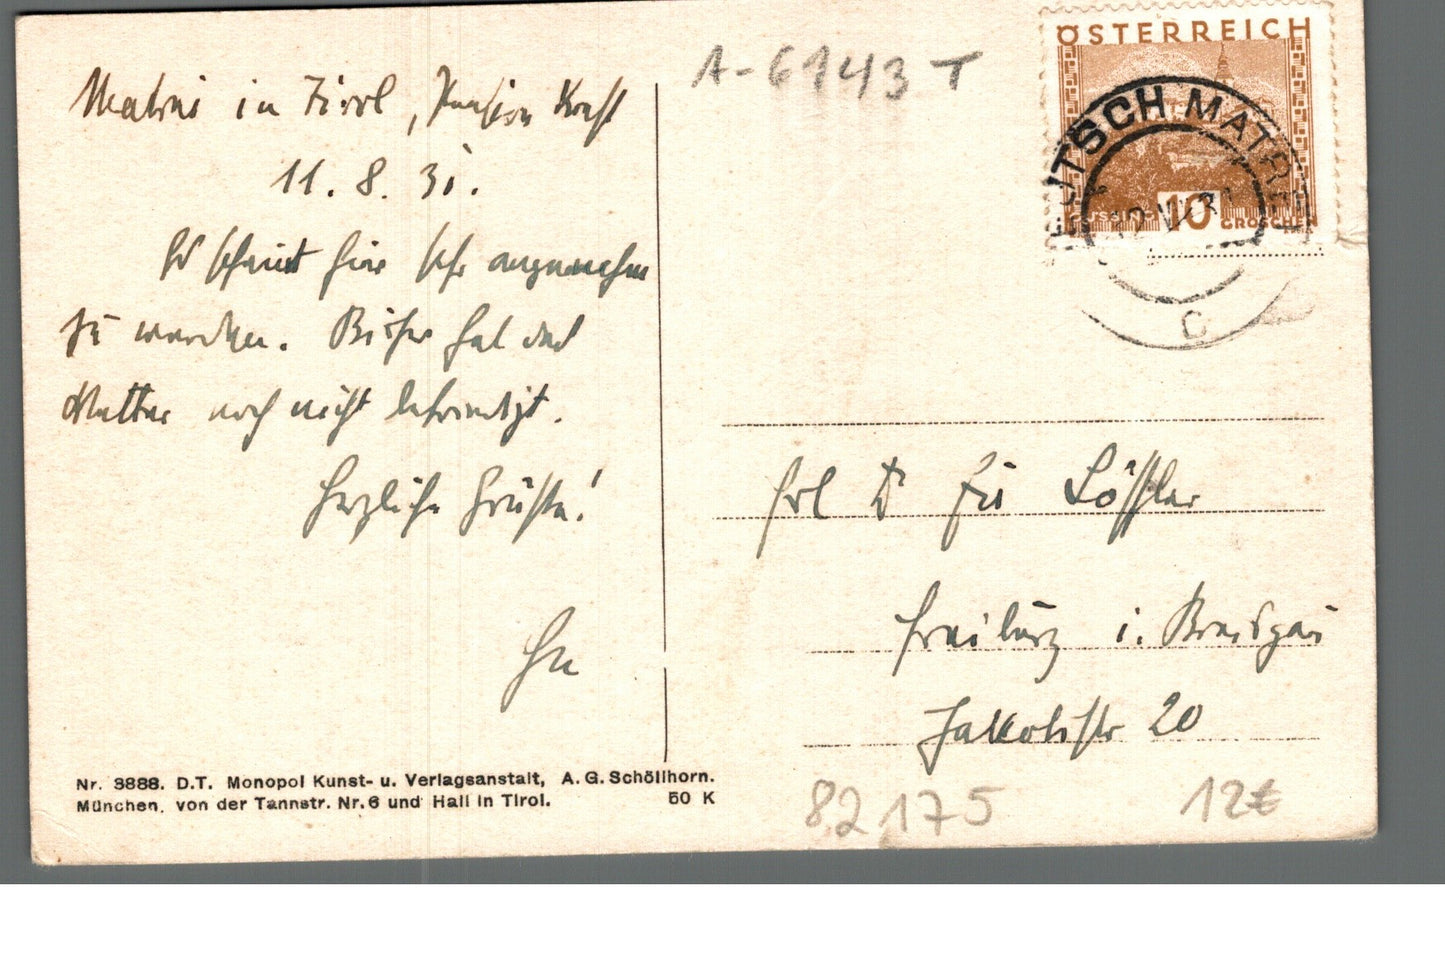 A-6143 T
ÖSTERREICH
GÜSSING 10 GROSCHEN
DEUTSCH MATREI
12 VIII 31
C
Matrei in Tirol, Pension Kraft
11. 8. 31.
Es scheint hier sehr angenehm
zu werden. Bisher hat das
Wetter noch nicht befriedigt.
Herzliche Grüße!
Frl Dr Löffler
Freiburg i. Breisgau
Jakobistr 20
Nr. 3888. D.T. Monopol Kunst- u. Verlagsanstalt, A.G. Schöllhorn.
München, von der Tannstr. Nr. 6 und Hall in Tirol. 50 K
82175 12€